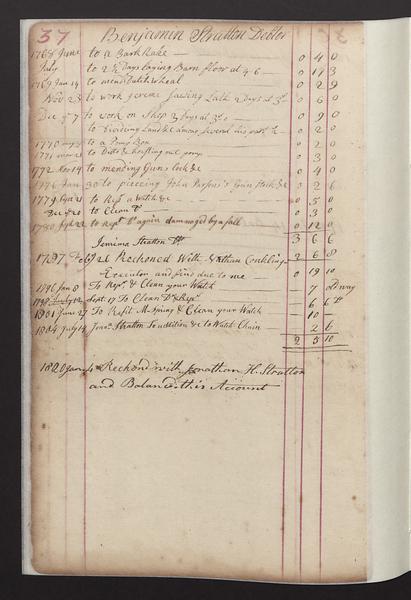 37 Benjamin Stratton Debtor
1768 June to a Bark Rake — 0 4 0
July to 2½ Days laying Barn floor at 4/6 — 0 11 3
1769 Jan 14 to mend wheal — 0 2 9
Nov 23 to work Sawing Lath 2 Days at 3/ 0 6 0
Dec 7 to work on Shop 3 Days at 3/0 — 0 9 0
to Dividing Land & — 0 2 0
1770 to a Pump Box — 0 2 0
1771 to Ditto & 0 3 0
1772 Nov 14 to mending Gun lock &c 0 4 0
1776 Jan 30 to pieceing John Parsons's Gun Stock &c 0 2 6
1779 Sept 21 to Repr a Watch &c — 0 5 0
Dec 20 to Clean Do — 0 3 0
1780 Sept 22 to Repr Do again damaged by a fall 0 12 0
Jemima Stratton Dr 3 6 6
1787 Feb 26 Reckoned With Nathan Conkling 2 6 8
Executor and find due to me — 0 19 10
1796 Jan 8 To Repr & Clean your Watch — 7
Sept 17 To Clean Do & Repr — 6 6
1801 June 27 To Refit M Spring & Clean your Watch — 10 —
1804 July 14 Stratton To addition &c to Watch Chain — 2 6
2 5 10
1820 Jan Reckond with Jonathan H. Stratton
and Balanced this Account